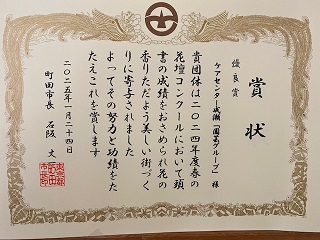 賞状
優良賞
ケアセンター成瀬「園芸グループ」様
貴団体は二〇二四年度春の
花壇コンクールにおいて頭
書の成績をおさめられ花の
香りただよう美しい街づく
りに寄与されました
よってその努力と功績をた
たえこれを賞します
二〇二五年一月二十四日
町田市長 石阪 丈